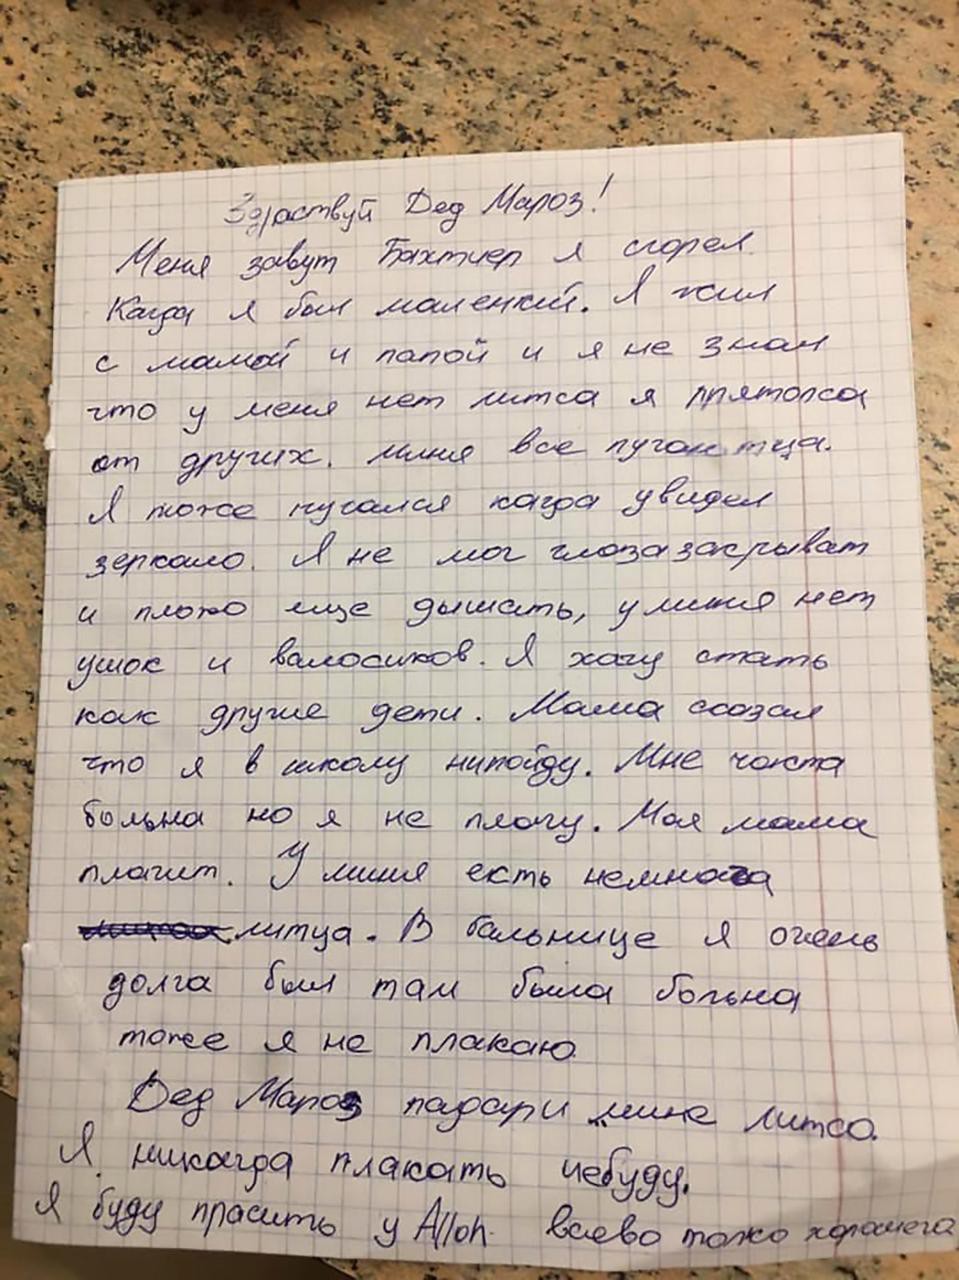 Здраствуй Дед Мароз!
Меня завут Бахтиер я сгорел
Кагда я был маленкий. Я жил
с мамой и папой и я не знал
что у меня нет литса я прятолса
от других. миня все пугаютца.
Я тоже пугался кагда увидел
зеркало. Я не мог глоза закрыват
и плохо еще дышать, у миня нет
ушок и валосиков. Я хачу стать
как другие дети. Мама сказал
что я в школу нипойду. Мне часта
больна но я не плачу. Моя мама
плачит. У миня есть немнога
литца. В бальнице я очень
долга был там была больна
тоже я не плакаю
Дед Мароз падари мине литсо.
Я никагда плакать небуду.
Я буду прасить у Alloh всево толко хорошега